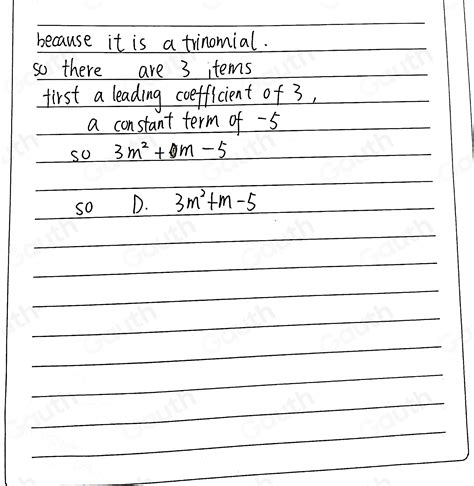 because it is a trinomial.
so there are 3 items
first a leading coefficient of 3,
a constant term of -5
so 3m² + m - 5
so D. 3m²+m-5